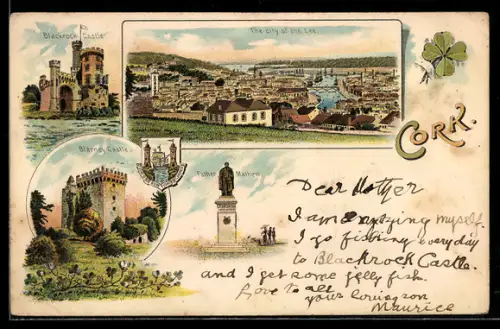 Blackrock Castle
The City of the Lee.
Blarney Castle
Father Mathew
CORK.
Dear Mother
I am enjoying myself.
I go fishing every day
to Blackrock Castle.
and I get some jelly fish.
Love to all
your loving son
Maurice